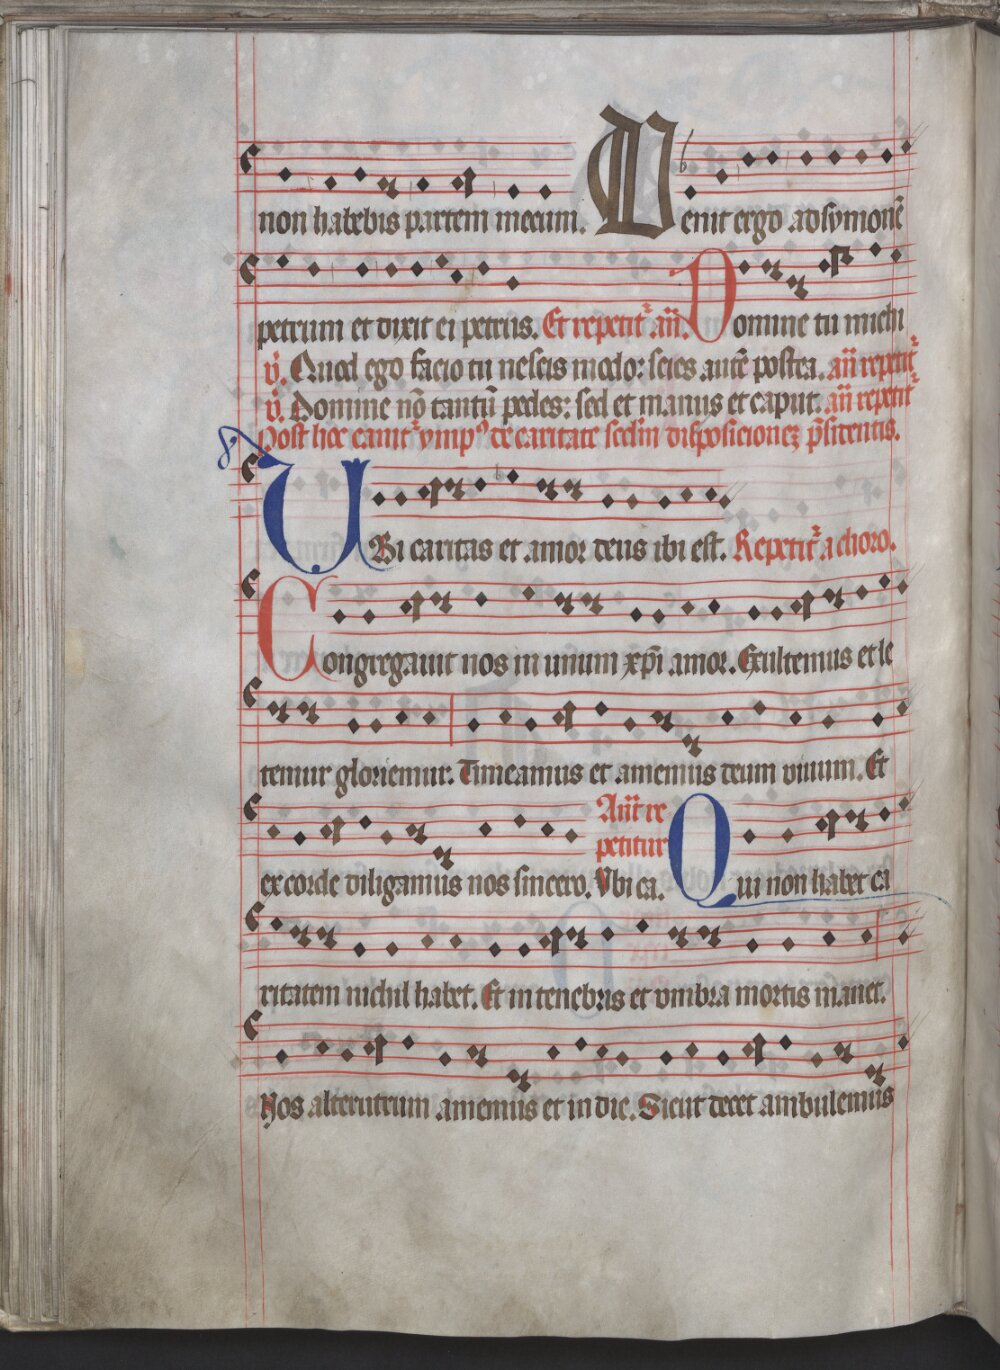 non habebis partem mecum. Uenit ergo ad symonē
petrum et dixit ei petrus. Et repetit᷑ an̄. Domine tu michi
v̄. Quod ego facio tu nescis modo: scies autē postea. an̄ repetit᷑
v̄. Domine nō tantū pedes: sed et manus et caput. an̄ repetit᷑
Post hec canit᷑ ympꝰ de caritate scdm disposicionez p̄sidentis.
UBi caritas et amor deus ibi est. Repetit᷑ a choro.
Congregauit nos in unum xp̄i amor. Exultemus et le
temur gloriemur. Timeamus et amemus deum uiuum. Et
ex corde diligamus nos sincero. Vbi ca. An̄ re
petitur Qui non habet ca
ritatem nichil habet. Et in tenebris et vmbra mortis manet.
Nos alterutrum amemus et in die. Sicut decet ambulemus